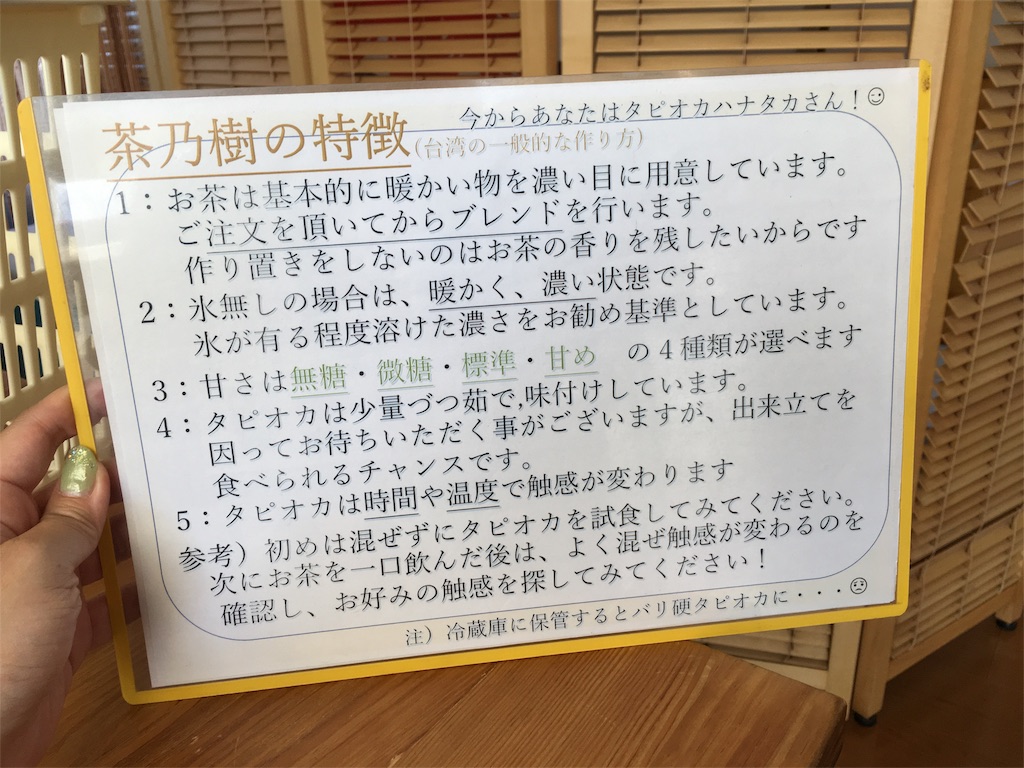 今からあなたはタピオカハナタカさん！☺
茶乃樹の特徴(台湾の一般的な作り方)
1：お茶は基本的に暖かい物を濃い目に用意しています。
ご注文を頂いてからブレンドを行います。
作り置きをしないのはお茶の香りを残したいからです
2：氷無しの場合は、暖かく、濃い状態です。
氷が有る程度溶けた濃さをお勧め基準としています。
3：甘さは無糖・微糖・標準・甘め　の４種類が選べます
4：タピオカは少量づつ茹で,味付けしています。
因ってお待ちいただく事がございますが、出来立てを
食べられるチャンスです。
5：タピオカは時間や温度で触感が変わります
参考）初めは混ぜずにタピオカを試食してみてください。
次にお茶を一口飲んだ後は、よく混ぜ触感が変わるのを
確認し、お好みの触感を探してみてください！
注）冷蔵庫に保管するとバリ硬タピオカに・・・☹